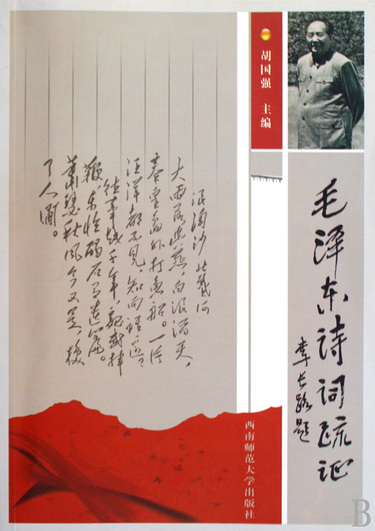 毛泽东诗词疏证
李长路题
胡国强 主编
西南师范大学出版社
浪淘沙 北戴河
大雨落幽燕,白浪滔天,
秦皇岛外打鱼船。一片
汪洋都不见,知向谁边?
往事越千年,魏武挥
鞭,东临碣石有遗篇。
萧瑟秋风今又是,换
了人间。
B